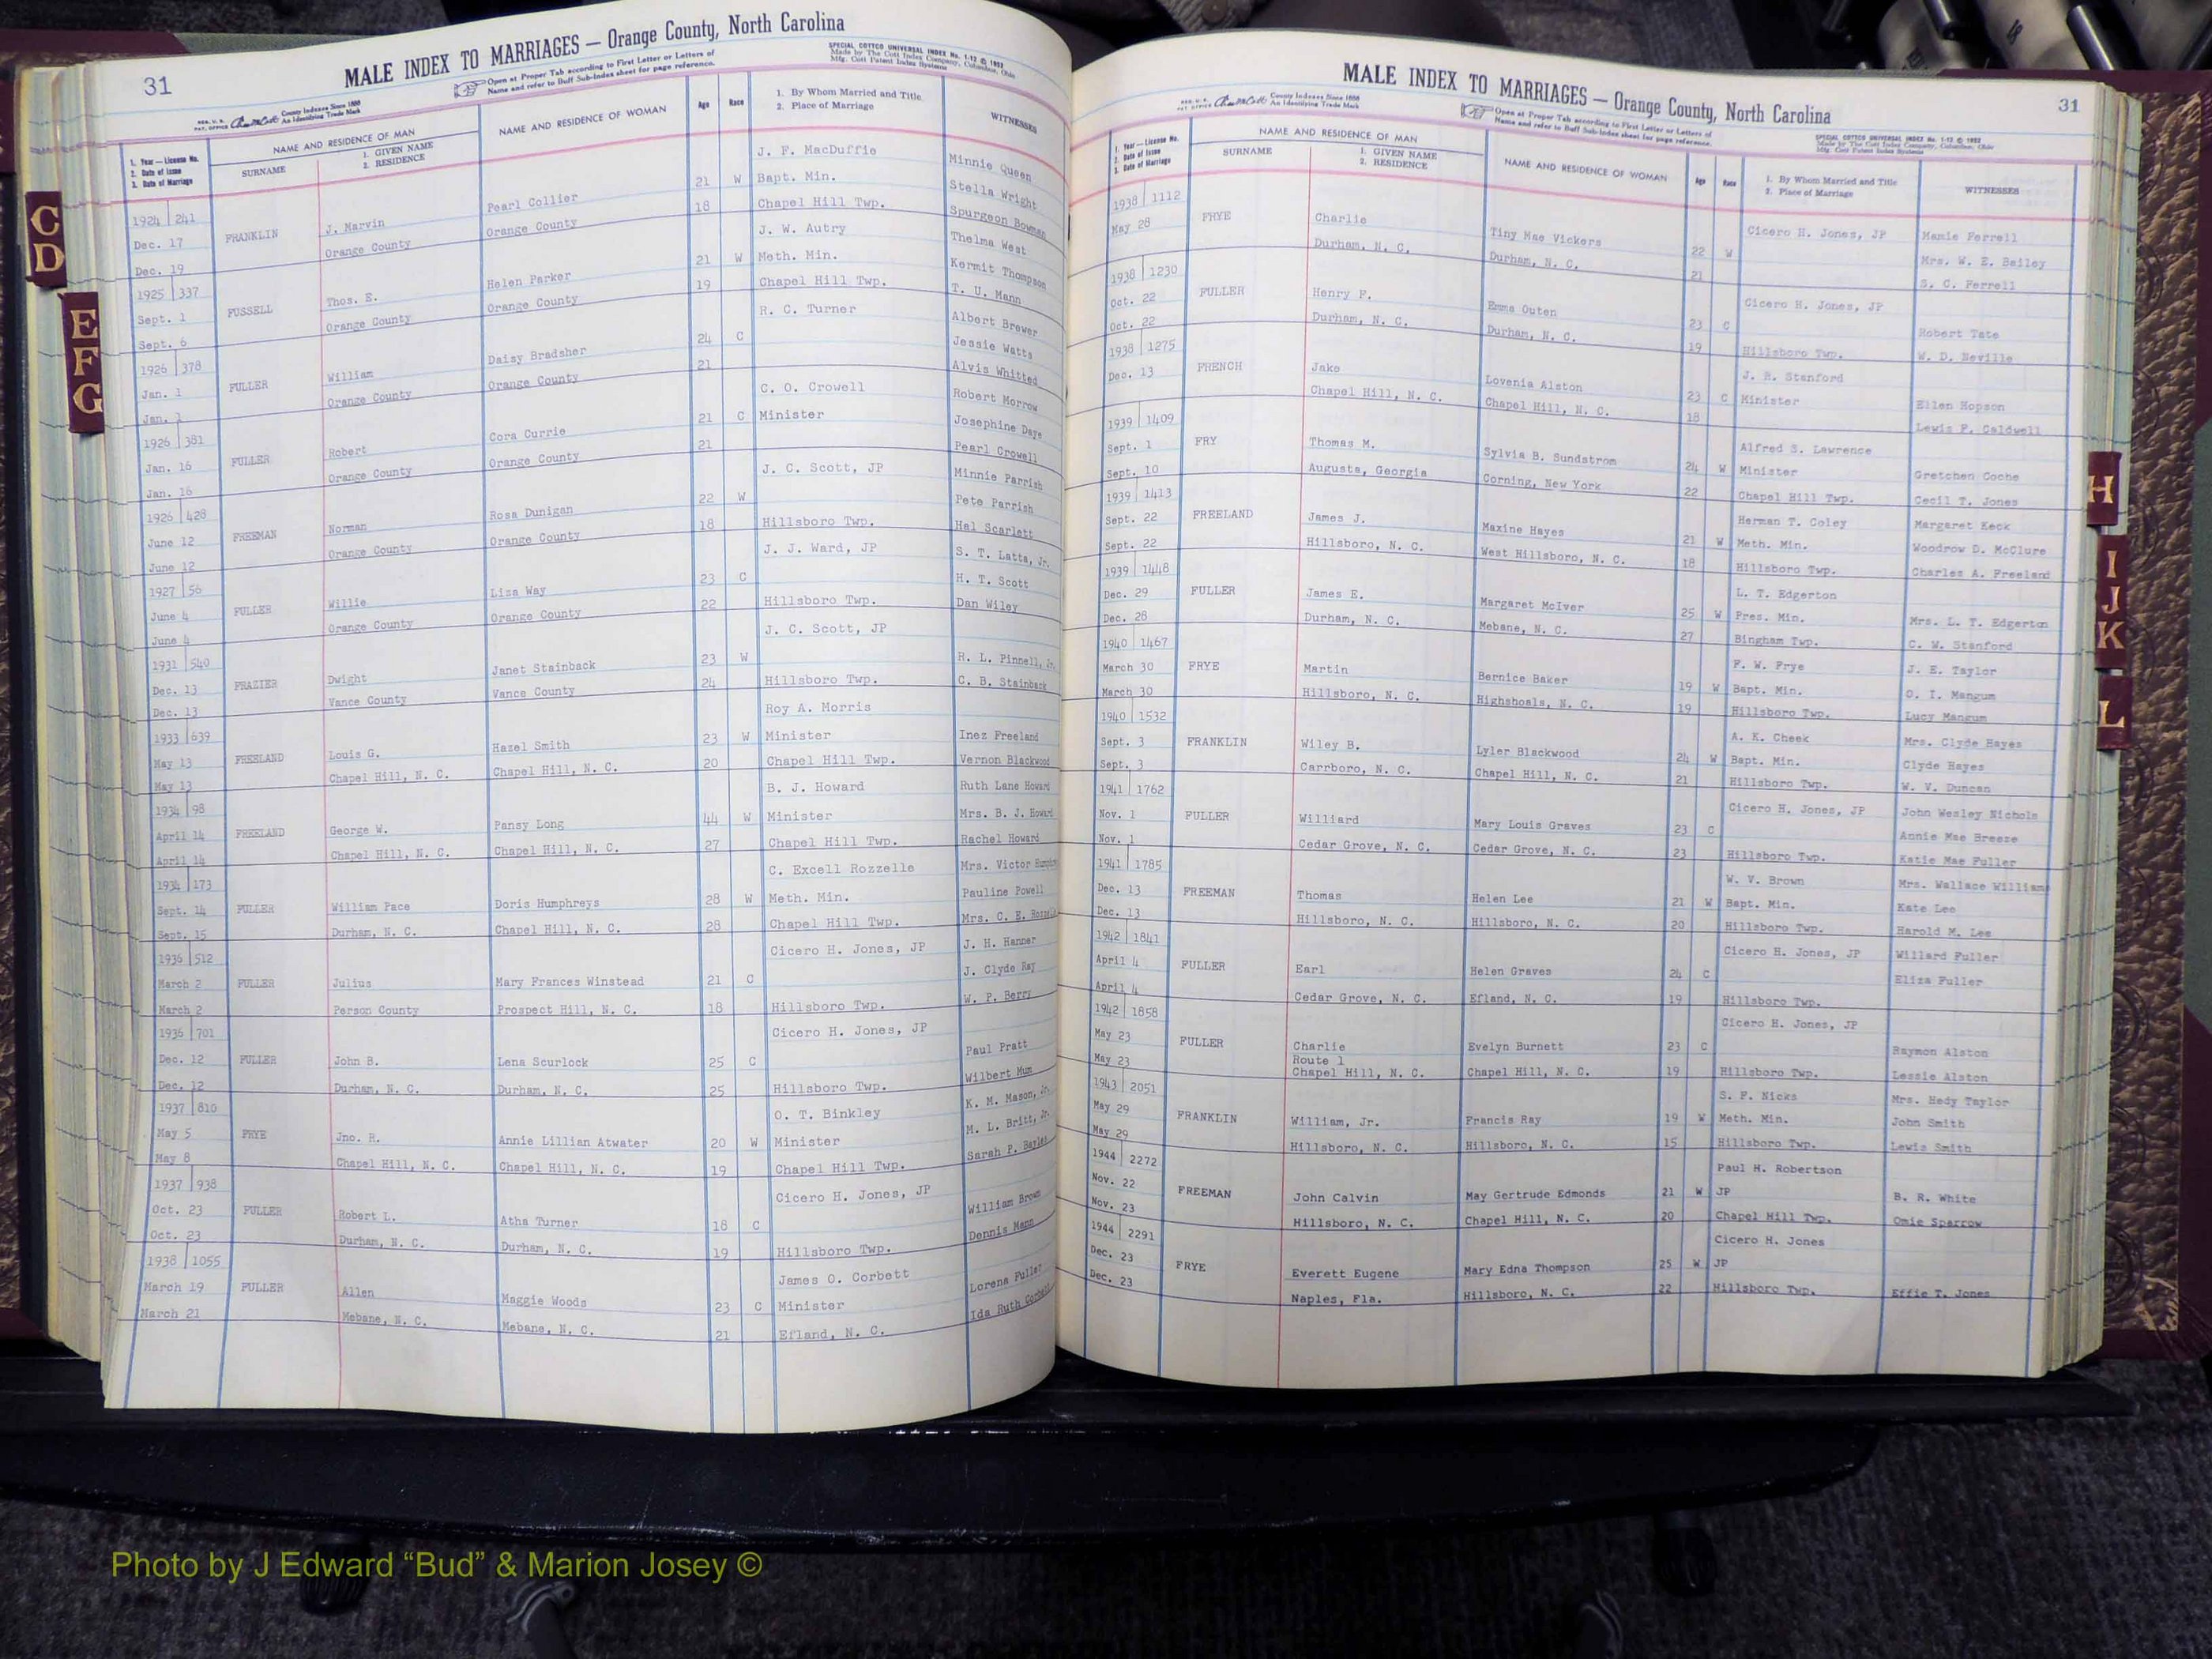 31
MALE INDEX TO MARRIAGES — Orange County, North Carolina
SPECIAL COTTCO UNIVERSAL INDEX No. 1-12 © 1952
Made by The Cott Index Company, Columbus, Ohio
Mfg. Cott Patent Index Systems
County Indexes Since 1888
An Identifying Trade Mark
Open at Proper Tab according to First Letter or Letters of
Name and refer to Buff Sub-Index sheet for page reference.
1. Year — License No.
2. Date of Issue
3. Date of Marriage
NAME AND RESIDENCE OF MAN
SURNAME
1. GIVEN NAME
2. RESIDENCE
NAME AND RESIDENCE OF WOMAN
Age
Race
1. By Whom Married and Title
2. Place of Marriage
WITNESSES
1924 241 J. F. MacDuffie Minnie Queen
Dec. 17 FRANKLIN J. Marvin Pearl Collier 21 W Bapt. Min. Stella Wright
Dec. 19 Orange County Orange County 18 Chapel Hill Twp. Spurgeon Bowman
1925 337 J. W. Autry Thelma West
Sept. 1 FUSSELL Thos. E. Helen Parker 21 W Meth. Min. Kermit Thompson
Sept. 6 Orange County Orange County 19 Chapel Hill Twp. T. U. Mann
1926 378 R. C. Turner Albert Brewer
Jan. 1 FULLER William Daisy Bradsher 24 C Jessie Watts
Jan. 1 Orange County Orange County 21 Alvis Whitted
1926 381 C. O. Crowell Robert Morrow
Jan. 16 FULLER Robert Cora Currie 21 C Minister Josephine Daye
Jan. 16 Orange County Orange County 21 Pearl Crowell
1926 428 J. C. Scott, JP Minnie Parrish
June 12 FREEMAN Norman Rosa Dunigan 22 W Pete Parrish
June 12 Orange County Orange County 18 Hillsboro Twp. Hal Scarlett
1927 56 J. J. Ward, JP S. T. Latta, Jr.
June 4 FULLER Willie Liza Way 23 C H. T. Scott
June 4 Orange County Orange County 22 Hillsboro Twp. Dan Wiley
1931 540 J. C. Scott, JP
Dec. 13 FRAZIER Dwight Janet Stainback 23 W R. L. Pinnell, Jr.
Dec. 13 Vance County Vance County 24 Hillsboro Twp. C. B. Stainback
1933 639 Roy A. Morris
May 13 FREELAND Louis G. Hazel Smith 23 W Minister Inez Freeland
May 13 Chapel Hill, N. C. Chapel Hill, N. C. 20 Chapel Hill Twp. Vernon Blackwood
1934 98 B. J. Howard Ruth Lane Howard
April 14 FREELAND George W. Pansy Long 44 W Minister Mrs. B. J. Howard
April 14 Chapel Hill, N. C. Chapel Hill, N. C. 27 Chapel Hill Twp. Rachel Howard
1934 173 C. Excell Rozzelle Mrs. Victor
Sept. 14 FULLER William Pace Doris Humphreys 28 W Meth. Min. Pauline Powell
Sept. 15 Durham, N. C. Chapel Hill, N. C. 28 Chapel Hill Twp. Mrs. C. E.
1936 512 Cicero H. Jones, JP J. H. Hanner
March 2 FULLER Julius Mary Frances Winstead 21 C J. Clyde Ray
March 2 Person County Prospect Hill, N. C. 18 Hillsboro Twp. W. P. Berry
1936 701 Cicero H. Jones, JP
Dec. 12 FULLER John B. Lena Scurlock 25 C Paul Pratt
Dec. 12 Durham, N. C. Durham, N. C. 25 Hillsboro Twp. Wilbert Mum
1937 810 O. T. Binkley K. M. Mason, Jr.
May 5 FRYE Jno. R. Annie Lillian Atwater 20 W Minister M. L. Britt, Jr.
May 8 Chapel Hill, N. C. Chapel Hill, N. C. 19 Chapel Hill Twp. Sarah P.
1937 938 Cicero H. Jones, JP
Oct. 23 FULLER Robert L. Atha Turner 18 C William Brown
Oct. 23 Durham, N. C. Durham, N. C. 19 Hillsboro Twp. Dennis Mann
1938 1055 James O. Corbett
March 19 FULLER Allen Maggie Woods 23 C Minister Lorena Fuller
March 21 Mebane, N. C. Mebane, N. C. 21 Efland, N. C. Ida Ruth Corbett
C
D
E
F
G
MALE INDEX TO MARRIAGES — Orange County, North Carolina
31
County Indexes Since 1888
An Identifying Trade Mark
Open at Proper Tab according to First Letter or Letters of
Name and refer to Buff Sub-Index sheet for page reference.
SPECIAL COTTCO UNIVERSAL INDEX No. 1-12 © 1952
Made by The Cott Index Company, Columbus, Ohio
Mfg. Cott Patent Index Systems
1. Year — License No.
2. Date of Issue
3. Date of Marriage
NAME AND RESIDENCE OF MAN
SURNAME
1. GIVEN NAME
2. RESIDENCE
NAME AND RESIDENCE OF WOMAN
Age
Race
1. By Whom Married and Title
2. Place of Marriage
WITNESSES
1938 1112 Cicero H. Jones, JP Mamie Ferrell
May 28 FRYE Charlie Tiny Mae Vickers 22 W Mrs. W. E. Bailey
Durham, N. C. Durham, N. C. 21 S. C. Ferrell
1938 1230 Cicero H. Jones, JP
Oct. 22 FULLER Henry F. Emma Outen 23 C Robert Tate
Oct. 22 Durham, N. C. Durham, N. C. 19 Hillsboro Twp. W. D. Neville
1938 1275 J. R. Stanford
Dec. 13 FRENCH Jake Lovenia Alston 23 C Minister Ellen Hopson
Chapel Hill, N. C. Chapel Hill, N. C. 18 Lewis F. Caldwell
1939 1409 Alfred S. Lawrence
Sept. 1 FRY Thomas M. Sylvia B. Sundstrom 24 W Minister Gretchen Coche
Sept. 10 Augusta, Georgia Corning, New York 22 Chapel Hill Twp. Cecil T. Jones
1939 1413 Herman T. Coley Margaret Keck
Sept. 22 FREELAND James J. Maxine Hayes 21 W Meth. Min. Woodrow D. McClure
Sept. 22 Hillsboro, N. C. West Hillsboro, N. C. 18 Hillsboro Twp. Charles A. Freeland
1939 1448 L. T. Edgerton
Dec. 29 FULLER James E. Margaret McIver 25 W Pres. Min. Mrs. L. T. Edgerton
Dec. 28 Durham, N. C. Mebane, N. C. 27 Bingham Twp. C. W. Stanford
1940 1467 F. W. Frye J. E. Taylor
March 30 FRYE Martin Bernice Baker 19 W Bapt. Min. O. I. Mangum
March 30 Hillsboro, N. C. Highshoals, N. C. 19 Hillsboro Twp. Lucy Mangum
1940 1532 A. K. Cheek Mrs. Clyde Hayes
Sept. 3 FRANKLIN Wiley B. Lyler Blackwood 24 W Bapt. Min. Clyde Hayes
Sept. 3 Carrboro, N. C. Chapel Hill, N. C. 21 Hillsboro Twp. W. V. Duncan
1941 1762 Cicero H. Jones, JP John Wesley Nichols
Nov. 1 FULLER Williard Mary Louis Graves 23 C Annie Mae Breeze
Nov. 1 Cedar Grove, N. C. Cedar Grove, N. C. 23 Hillsboro Twp. Katie Mae Fuller
1941 1785 W. V. Brown Mrs. Wallace William
Dec. 13 FREEMAN Thomas Helen Lee 21 W Bapt. Min. Kate Lee
Dec. 13 Hillsboro, N. C. Hillsboro, N. C. 20 Hillsboro Twp. Harold M. Lee
1942 1841 Cicero H. Jones, JP Willard Fuller
April 4 FULLER Earl Helen Graves 24 C Eliza Fuller
April 4 Cedar Grove, N. C. Efland, N. C. 19 Hillsboro Twp.
1942 1858 Cicero H. Jones, JP
May 23 FULLER Charlie Evelyn Burnett 23 C Raymon Alston
Route 1
May 23 Chapel Hill, N. C. Chapel Hill, N. C. 19 Hillsboro Twp. Lessie Alston
1943 2051 S. F. Nicks Mrs. Hedy Taylor
May 29 FRANKLIN William, Jr. Francis Ray 19 W Meth. Min. John Smith
May 29 Hillsboro, N. C. Hillsboro, N. C. 15 Hillsboro Twp. Lewis Smith
1944 2272 Paul H. Robertson
Nov. 22 FREEMAN John Calvin May Gertrude Edmonds 21 W JP B. R. White
Nov. 23 Hillsboro, N. C. Chapel Hill, N. C. 20 Chapel Hill Twp. Omie Sparrow
1944 2291 Cicero H. Jones
Dec. 23 FRYE Everett Eugene Mary Edna Thompson 25 W JP
Dec. 23 Naples, Fla. Hillsboro, N. C. 22 Hillsboro Twp. Effie T. Jones
H
I
J
K
L
Photo by J Edward “Bud” & Marion Josey ©